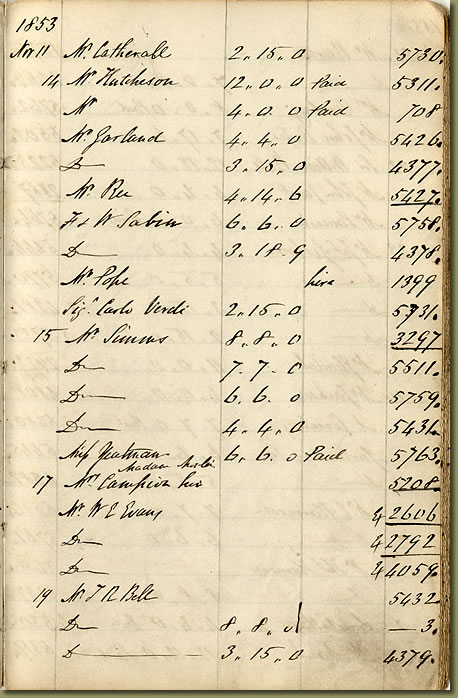 1853
Nov 11 Mr. Catherall 2.. 15.. 0 5730.
14 Mr Hutcheson 12.. 0.. 0 Paid 5311.
Mr 4.. 0.. 0 Paid 708
Mr. Garland 4.. 4.. 0 5426.
D— 3.. 15.. 0 4377.
Mr. Ree 4.. 14.. 6 5427.
F & W Sabin 6.. 6.. 0 5758.
D— 3.. 18.. 9 4378.
Mr. Pope hire 1399
Sigr. Carlo Verdi 2.. 15.. 0 5731.
15 Mr. Simms 8.. 8.. 0 3297
D— 7.. 7.. 0 5511.
D— 6.. 6.. 0 5759.
D— 4.. 4.. 0 5431.
Miss 6.. 6.. 0 Paid 5763.
Madam
17 Campion 5208.
Mr. W E Evans & 2606
D— & 2792
D— & 4059.
19 Mr J R Bell 5432.
D— 8.. 8.. 0 — 3.
D— 3.. 15.. 0 4379.